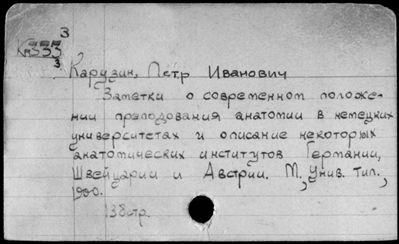 3
К 353
3
Карузин, Петр Иванович
Заметки о современном положе-
нии преподования анатомии в немецких
университетах и описание некоторых
анатомических институтов Германии,
Швейцарии и Австрии. М., Унив. тип.,
1900.
138стр.